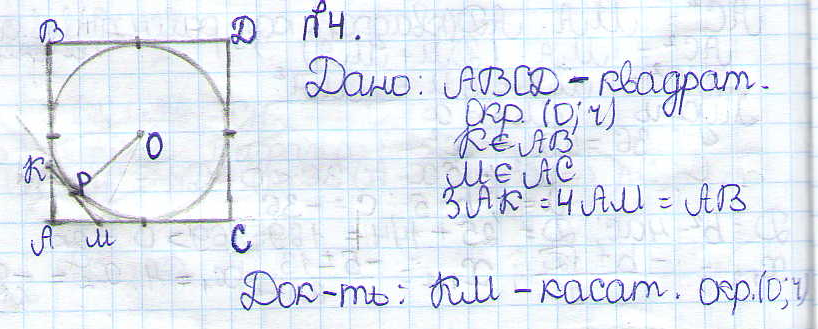 B D
N4.
Дано: ABCD - квадрат.
окр. (O; r)
K ∈ AB
M ∈ AC
3AK = 4AM = AB
K P O
A M C
Док-ть: KM - касат. окр. (O; r)